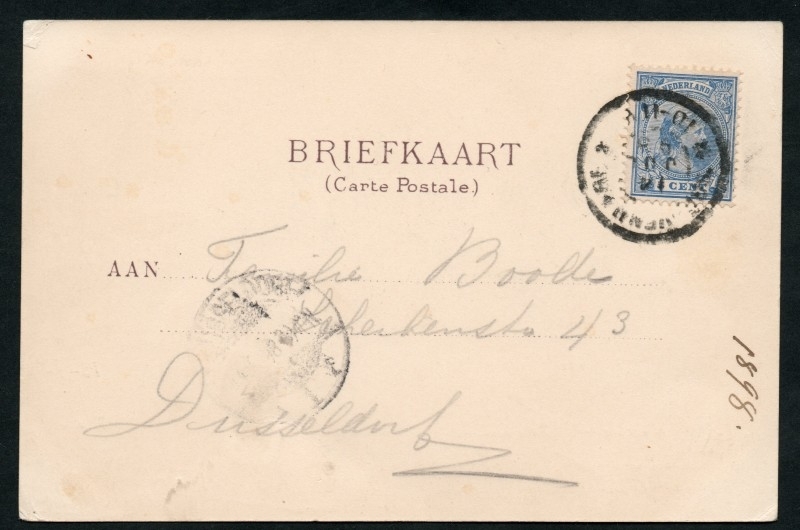 NEDERLAND
CENT
BRIEFKAART
(Carte Postale.)
AAN Familie Boode
43
Dusseldorf
1898.